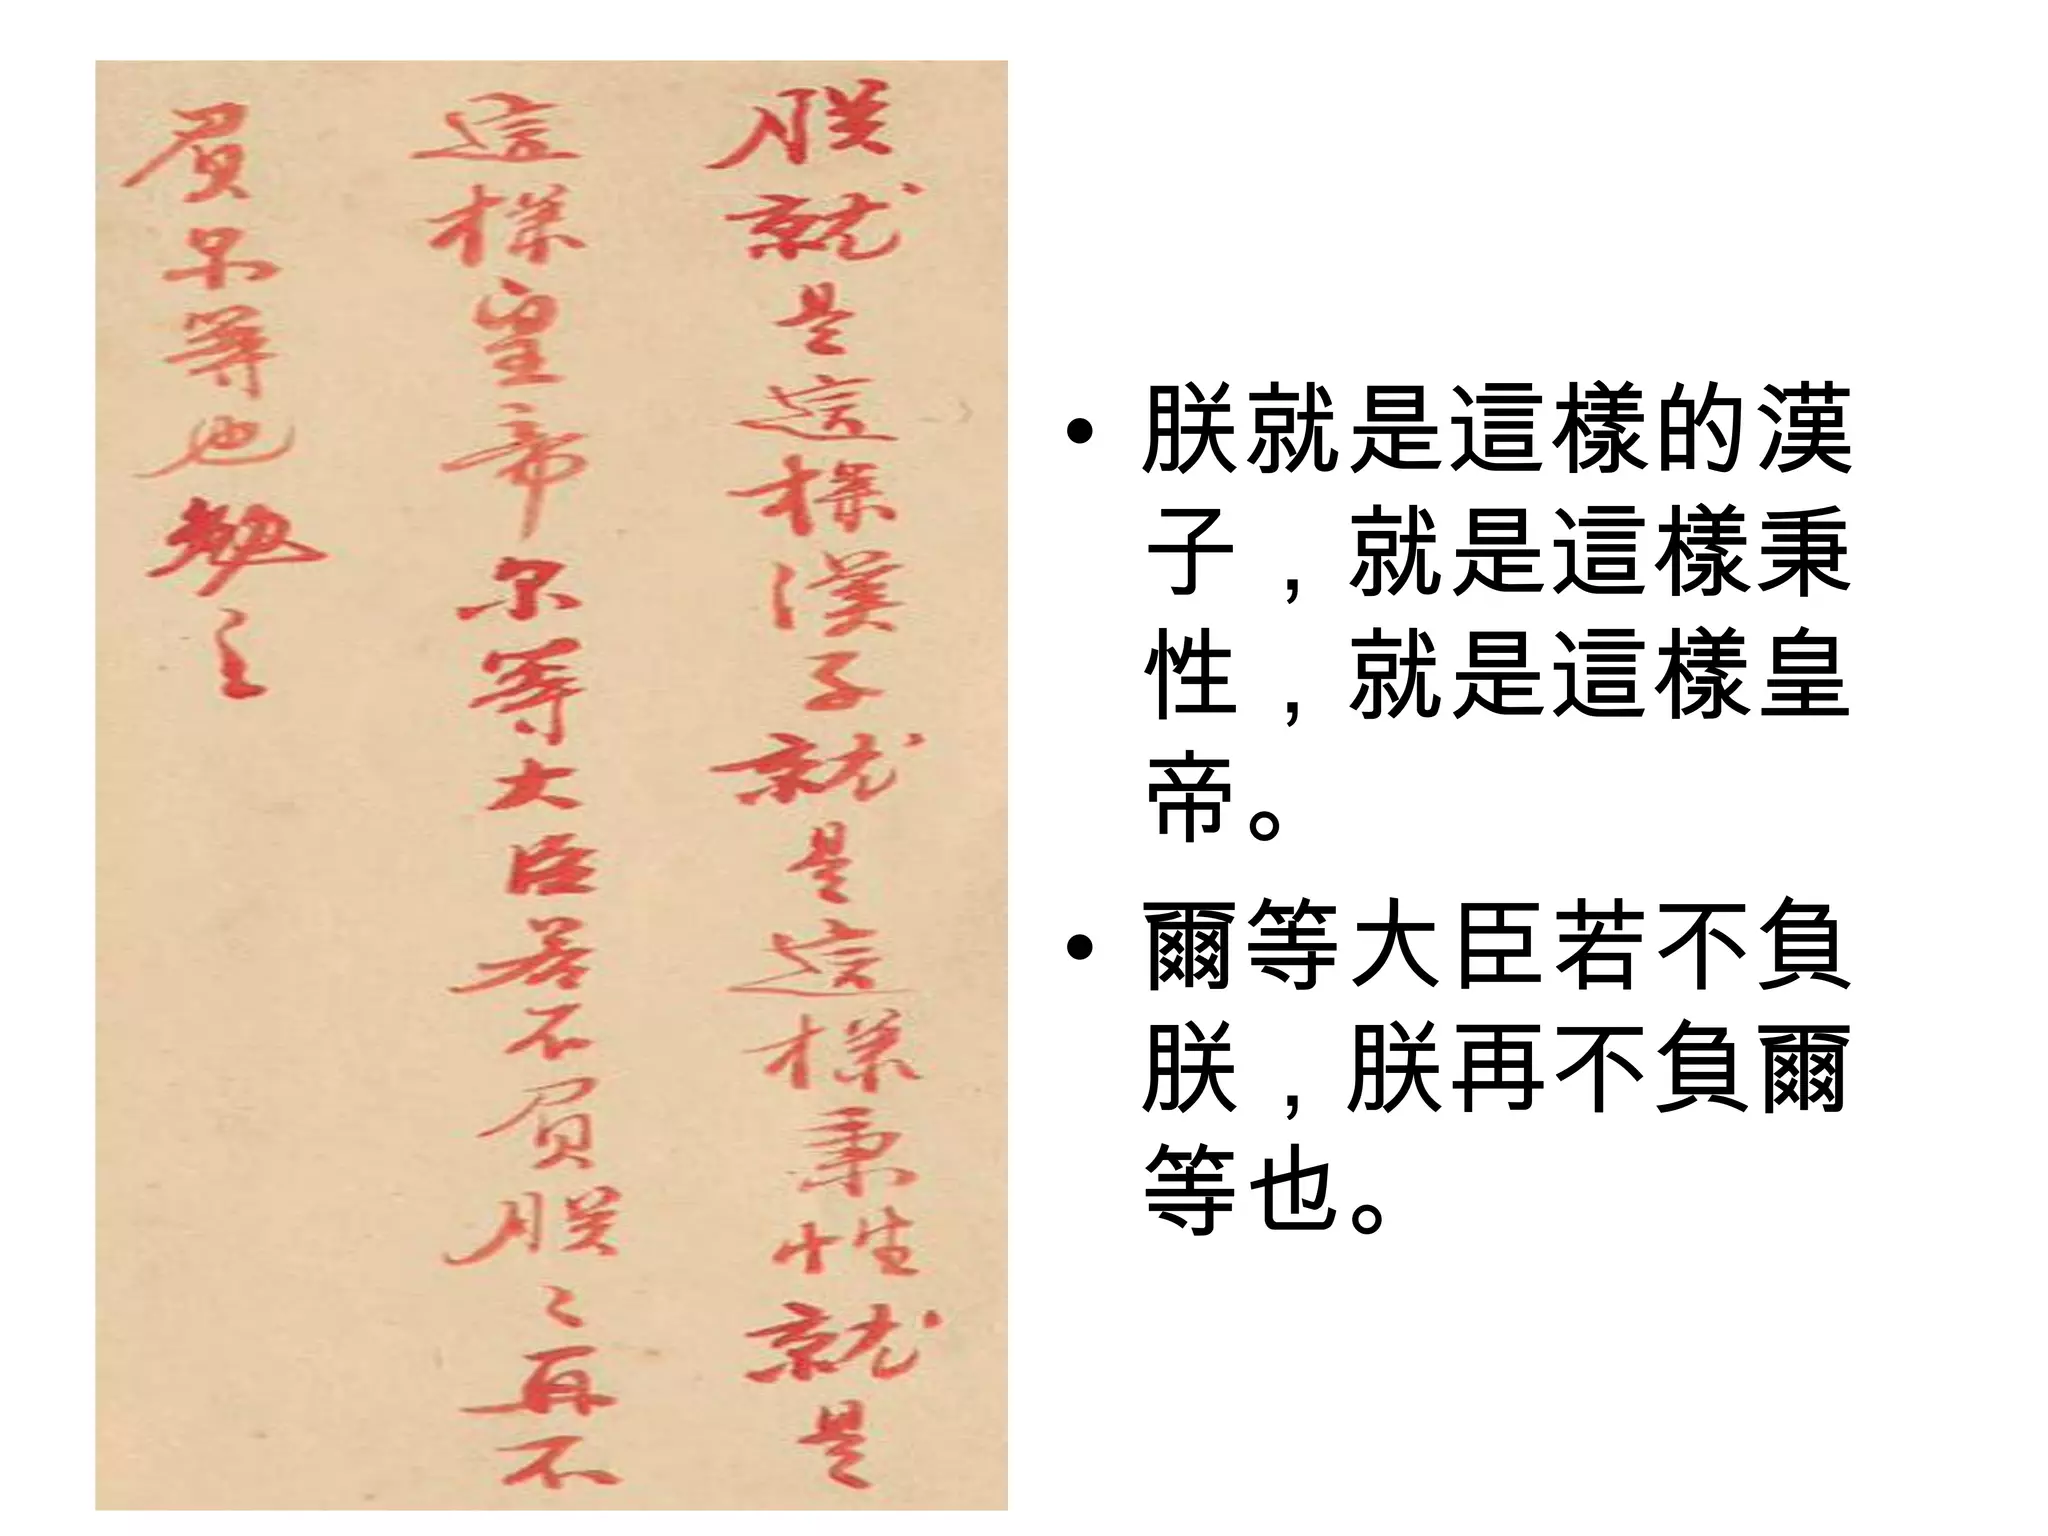 朕就是這樣漢子就是這樣秉性就是
這樣皇帝尔等大臣若不負朕〻再不
負尔等也勉之
• 朕就是這樣的漢
子，就是這樣秉
性，就是這樣皇
帝。
• 爾等大臣若不負
朕，朕再不負爾
等也。